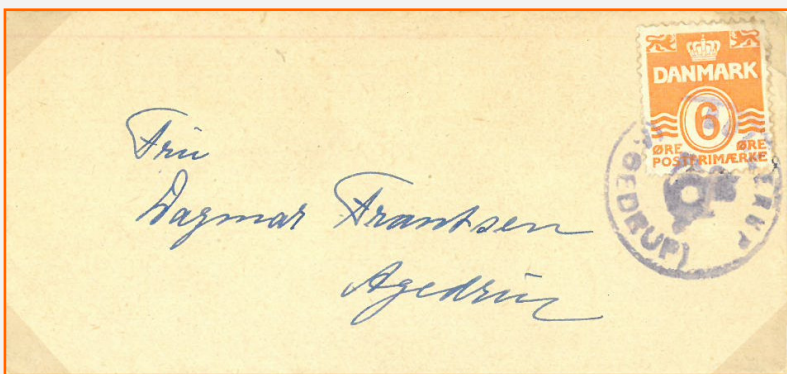 DANMARK
6
ØRE ØRE
POSTFRIMÆRKE
Fru
Dagmar Frantsen
Agedrup